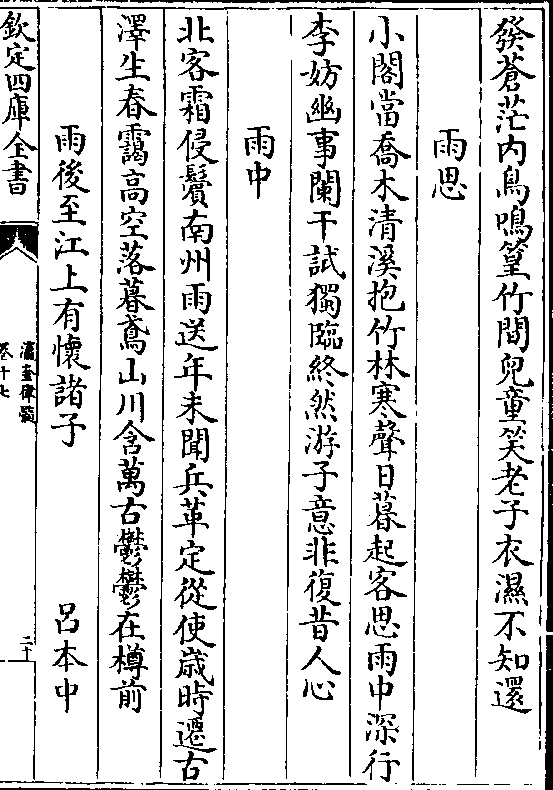 發蒼茫内鳥鳴篁竹間兒童笑老子衣濕不知還
雨思
小閣當喬木清溪抱竹林寒聲日暮起客思雨中深行
李妨幽事闌干試獨臨終然游子意非復昔人心
雨中
北客霜侵鬢南州雨送年未聞兵革定從使歲時遷古
澤生春靄高空落暮鳶山川含萬古鬱鬱在樽前
雨後至江上有懷諸子 呂本中
欽定四庫全書
瀛奎律髓
卷十七
二十